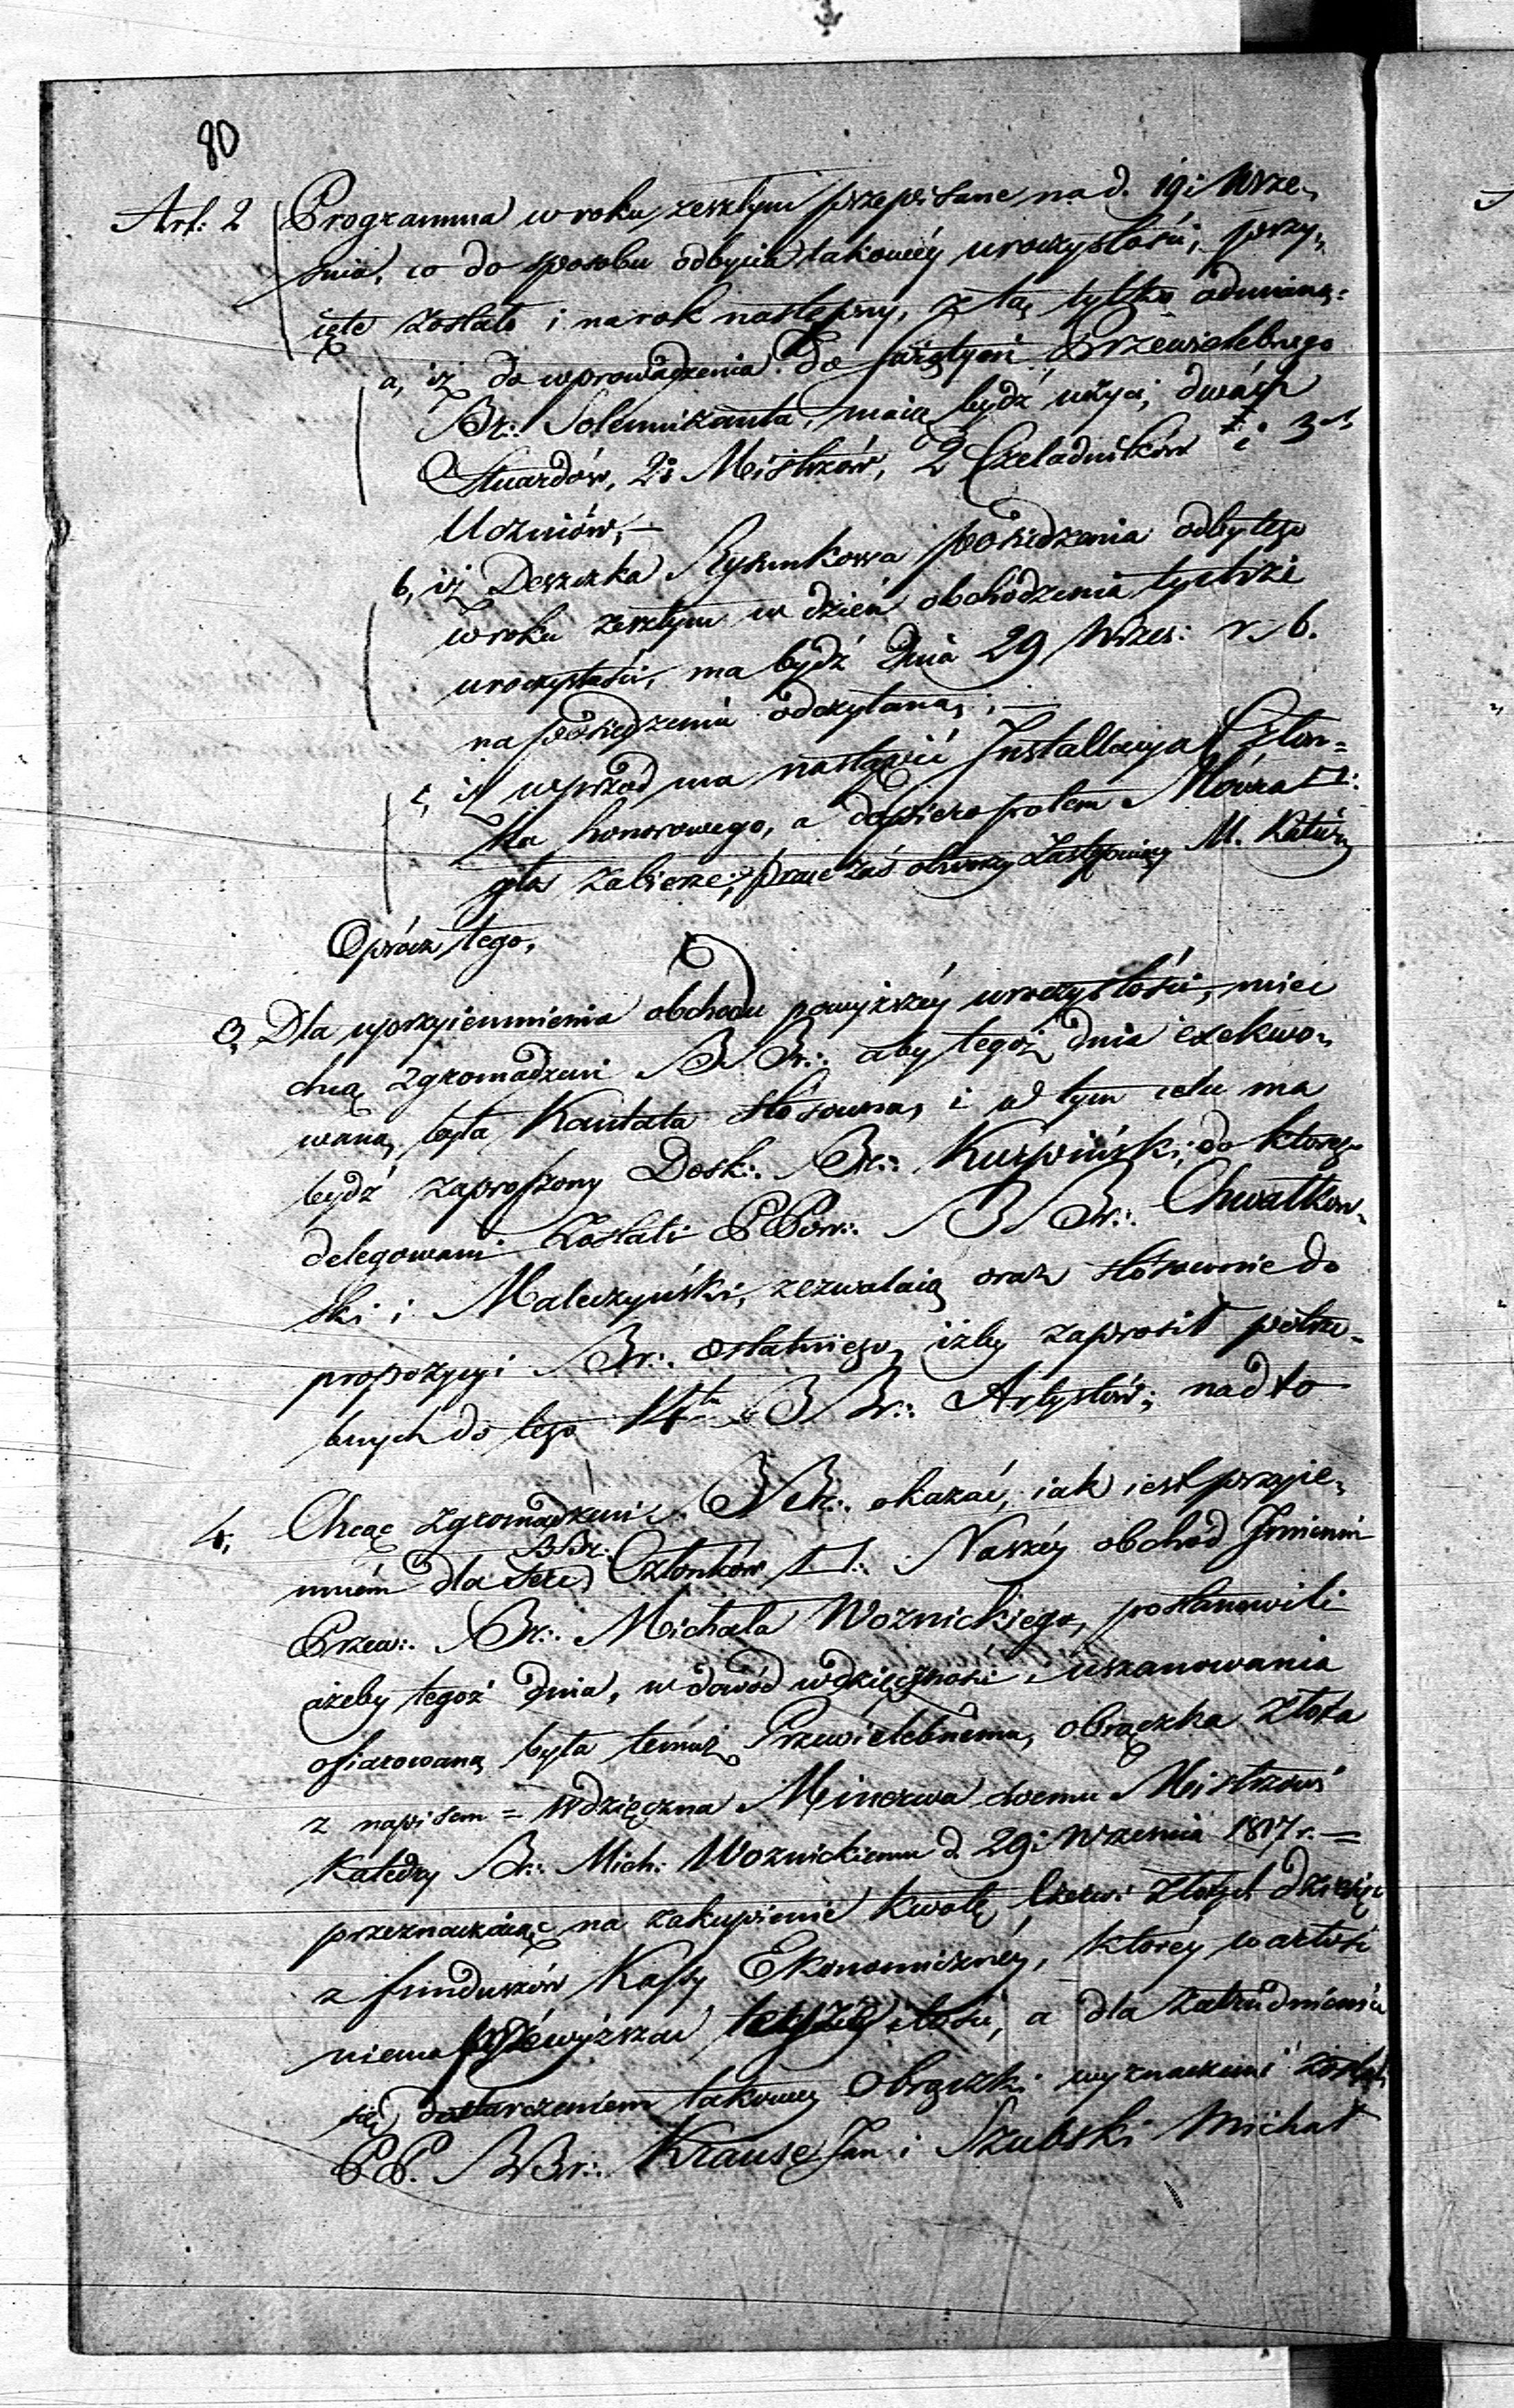 80
Art: 2 Programma w roku zeszłym przepisane na d. 19i Wrze„
śnia, co do sposobu odbycia takowéy uroczystości, przy„
ięte zostało i na rok następny, z tą tylko odmianą:
a, iż do wprowadzenia do świątyni Przewielebnego
Br∴ Solennizanta, maią bydź użyci, dwóch
Stuardów, 2i Mistrzów, 2 Czeladników i 3ch
Uczniów, —
b, iż Deszczka Rysunkowa posiedzenia odbytego
w roku zeszłym w dzień obchodzenia tychże
uroczystości, ma bydź Dnia 29 Wrześ: r. b.
na posiedzeniu odczytaną; —
c, iż wprzód ma nastąpić Installacya Człon=
ka honorowego, a dopiero potem Mówca
głos zabierze; prace zaś otworzy Zastępuiący M. Katedr
Oprócz tego,
3, Dla uprzyiemnienia obchodu powyższéy uroczystości, mieć
chcą zgromadzeni BBr∴ aby tegoż dnia exekwo„
waną była Kantata stosowna, i w tym celu ma
bydź zaproszony Dosk∴ Br∴ Kurpiński, do którego
delegowani zostali PPow∴ BBr∴ Chwałkow„
ski i Maleczyński, zezwalaią oraz stosownie do
propozycyi Br∴ ostatniego, iżby zaprosił potrze„
bnych do tego 14tu BBr∴ Artystów; nadto
4, Chcąc zgromadzeni BBr∴ okazać, iak iest przyie„
mném dla Serc BBr∴ Członków Naszéy obchód Imienin
Przew∴ Br∴ Michała Woznickiego, postanowili
ażeby tegoż dnia, w dowód wdzięczności i uszanowania
ofiarowaną była temuż Przewielebnemu, obrączka złota
z napisem = Wdzięczna Minerwa swemu Mistrzowi
Katedry Br∴ Mich: Woznickiemu d. 29i Września 1817 r. =
przeznaczaiąc na zakupienie kwotę, Czerwi Złotych dziesięć
z funduszów Kassy Ekonomicznéy, któréy wartość
niema przewyższać ilości, a dla zatrudnienia
się dostarczeniem takowéy Obrączki wyznaczeni zostali
PP. BBr∴ Krause Jan i Szubski Michał